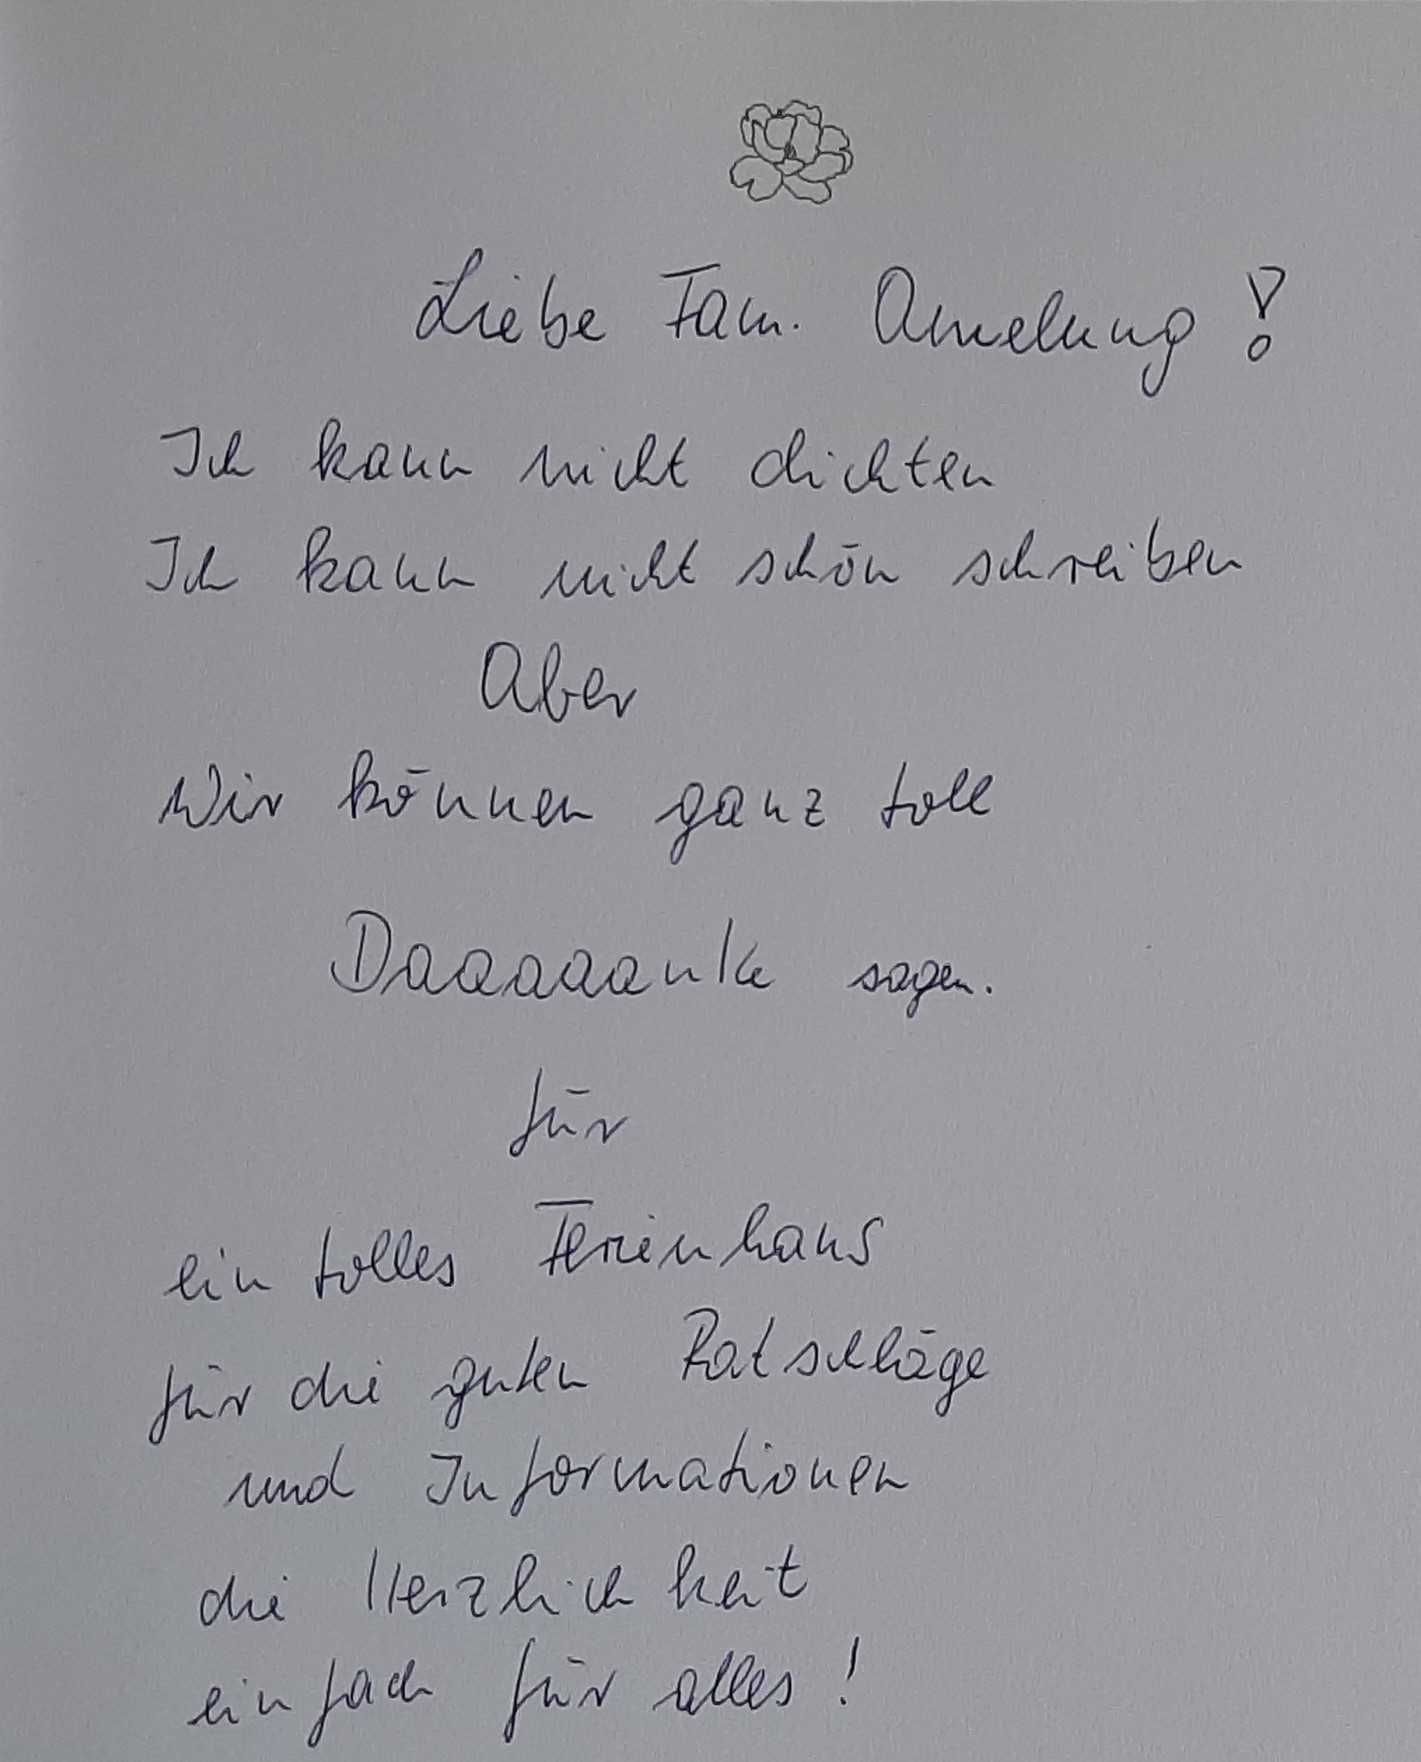 Liebe Fam. Amelung!
Ich kann nicht dichten
Ich kann nicht schön schreiben
Aber
Wir können ganz toll
Daaaaaanke sagen.
für
ein tolles Ferienhaus
für die guten Ratschläge
und Informationen
die Herzlichkeit
einfach für alles!